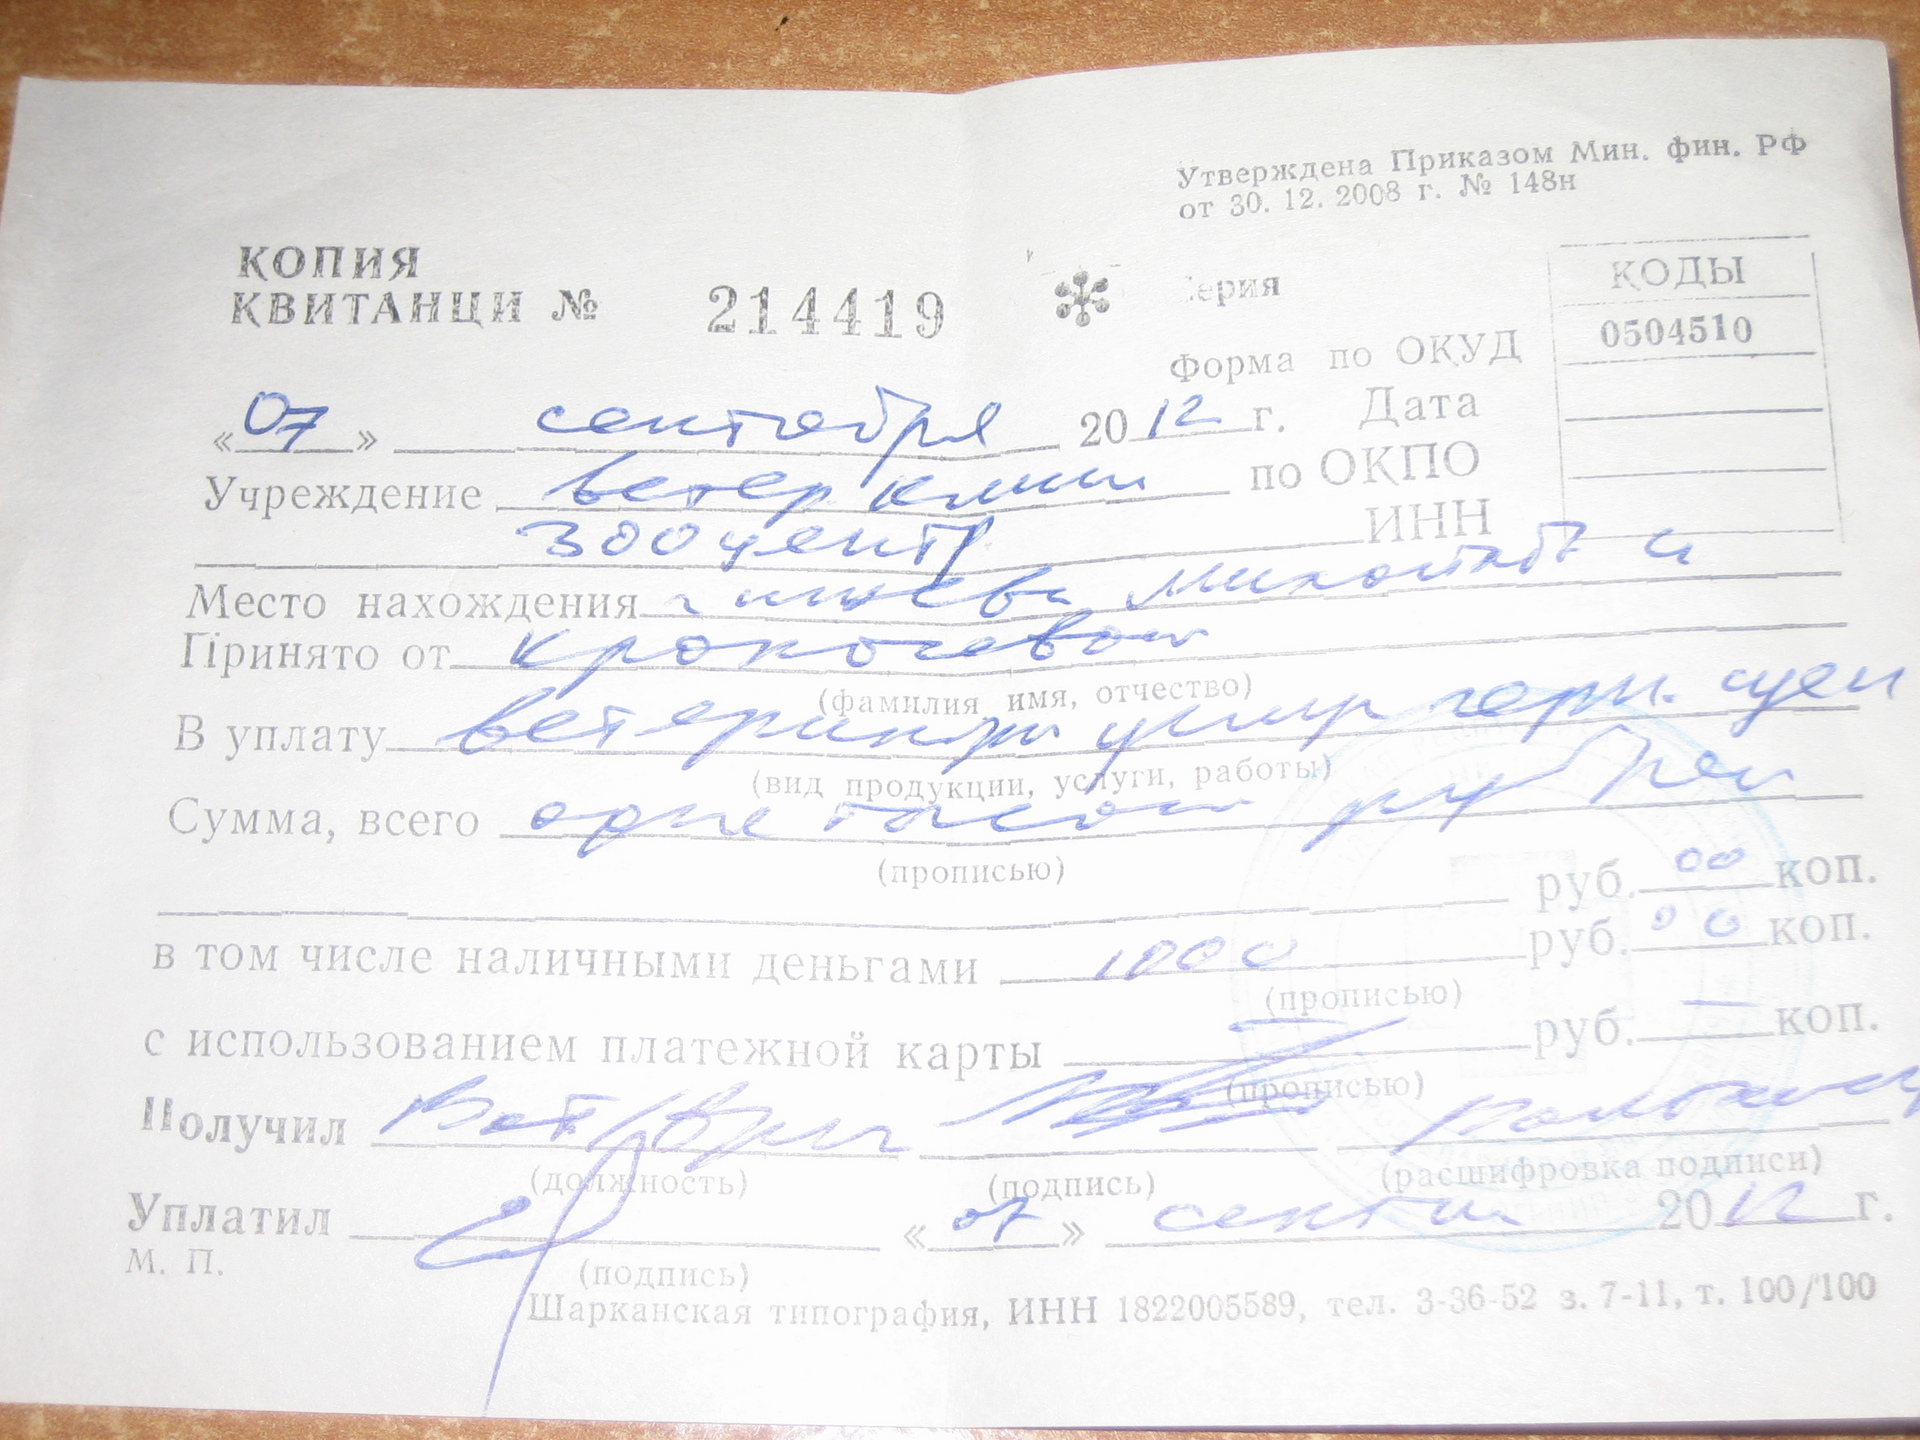 Утверждена Приказом Мин. фин. РФ
от 30. 12. 2008 г. № 148н
КОПИЯ
КВИТАНЦИ № 214419 ерия
КОДЫ
Форма по ОКУД 0504510
«07» сентября 2012 г. Дата
Учреждение ветер клин по ОКПО
зооцентр ИНН
Место нахождения г Ижевск
Принято от
(фамилия имя, отчество)
В уплату
(вид продукции, услуги, работы)
Сумма, всего одна тысяча рублей
(прописью)
руб. 00 коп.
в том числе наличными деньгами 1000 руб. 00 коп.
(прописью)
с использованием платежной карты — руб. — коп.
(прописью)
Получил
(должность) (подпись) (расшифровка подписи)
Уплатил «07» 2012 г.
М. П.
(подпись)
Шарканская типография, ИНН 1822005589, тел. 3-36-52 з. 7-11, т. 100/100